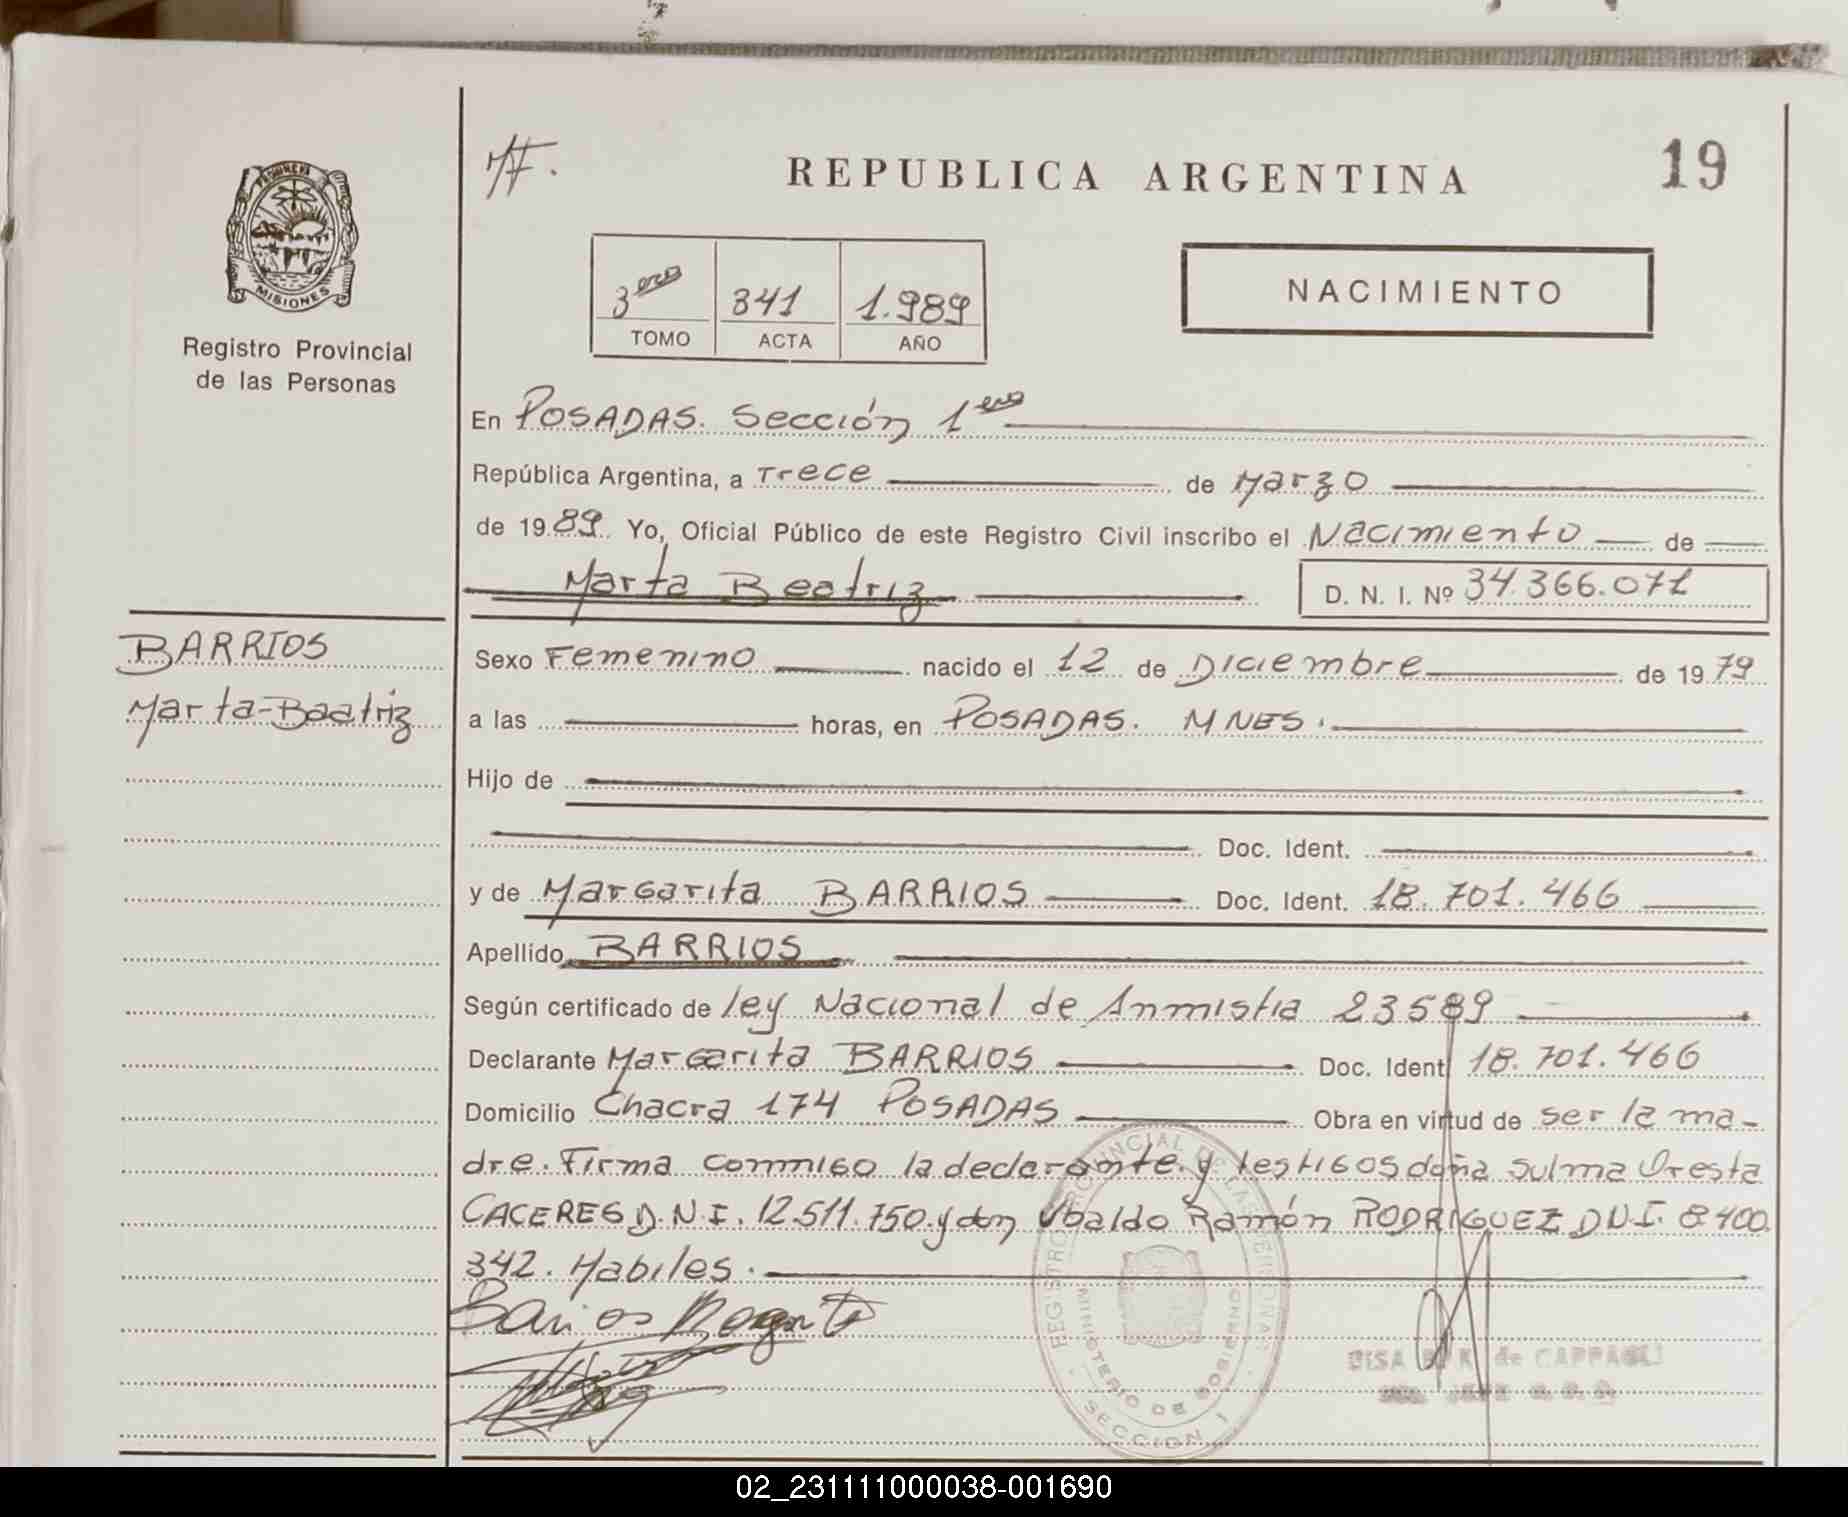 M F.
REPUBLICA ARGENTINA
19
PROVINCIA
MISIONES
Registro Provincial
de las Personas
3ero 341 1.989
TOMO ACTA AÑO
NACIMIENTO
En POSADAS. Sección 1era
República Argentina, a Trece de Marzo
de 1989. Yo, Oficial Público de este Registro Civil inscribo el Nacimiento de
Marta Beatriz D. N. I. Nº 34.366.071
BARRIOS
Marta-Baatriz
Sexo Femenino nacido el 12 de Diciembre de 1979
a las horas, en POSADAS. MNES.
Hijo de
Doc. Ident.
y de Margarita BARRIOS Doc. Ident. 18.701.466
Apellido BARRIOS
Según certificado de ley Nacional de Anmistia 23589
Declarante Margarita BARRIOS Doc. Ident 18.701.466
Domicilio Chacra 174 POSADAS Obra en virtud de ser la ma-
dre. Firma conmigo la declarante y testigos doña Sulma Oresta
CACERES D.N.I. 12.511.750. y don Ubaldo Ramón RODRIGUEZ D.N.I. 8.400.
342. Habiles.
Barrios Margarita
REGISTRO PROVINCIAL DE LAS PERSONAS
MINISTERIO DE GOBIERNO
SECCION 1
de CAPPAGLI
02_231111000038-001690